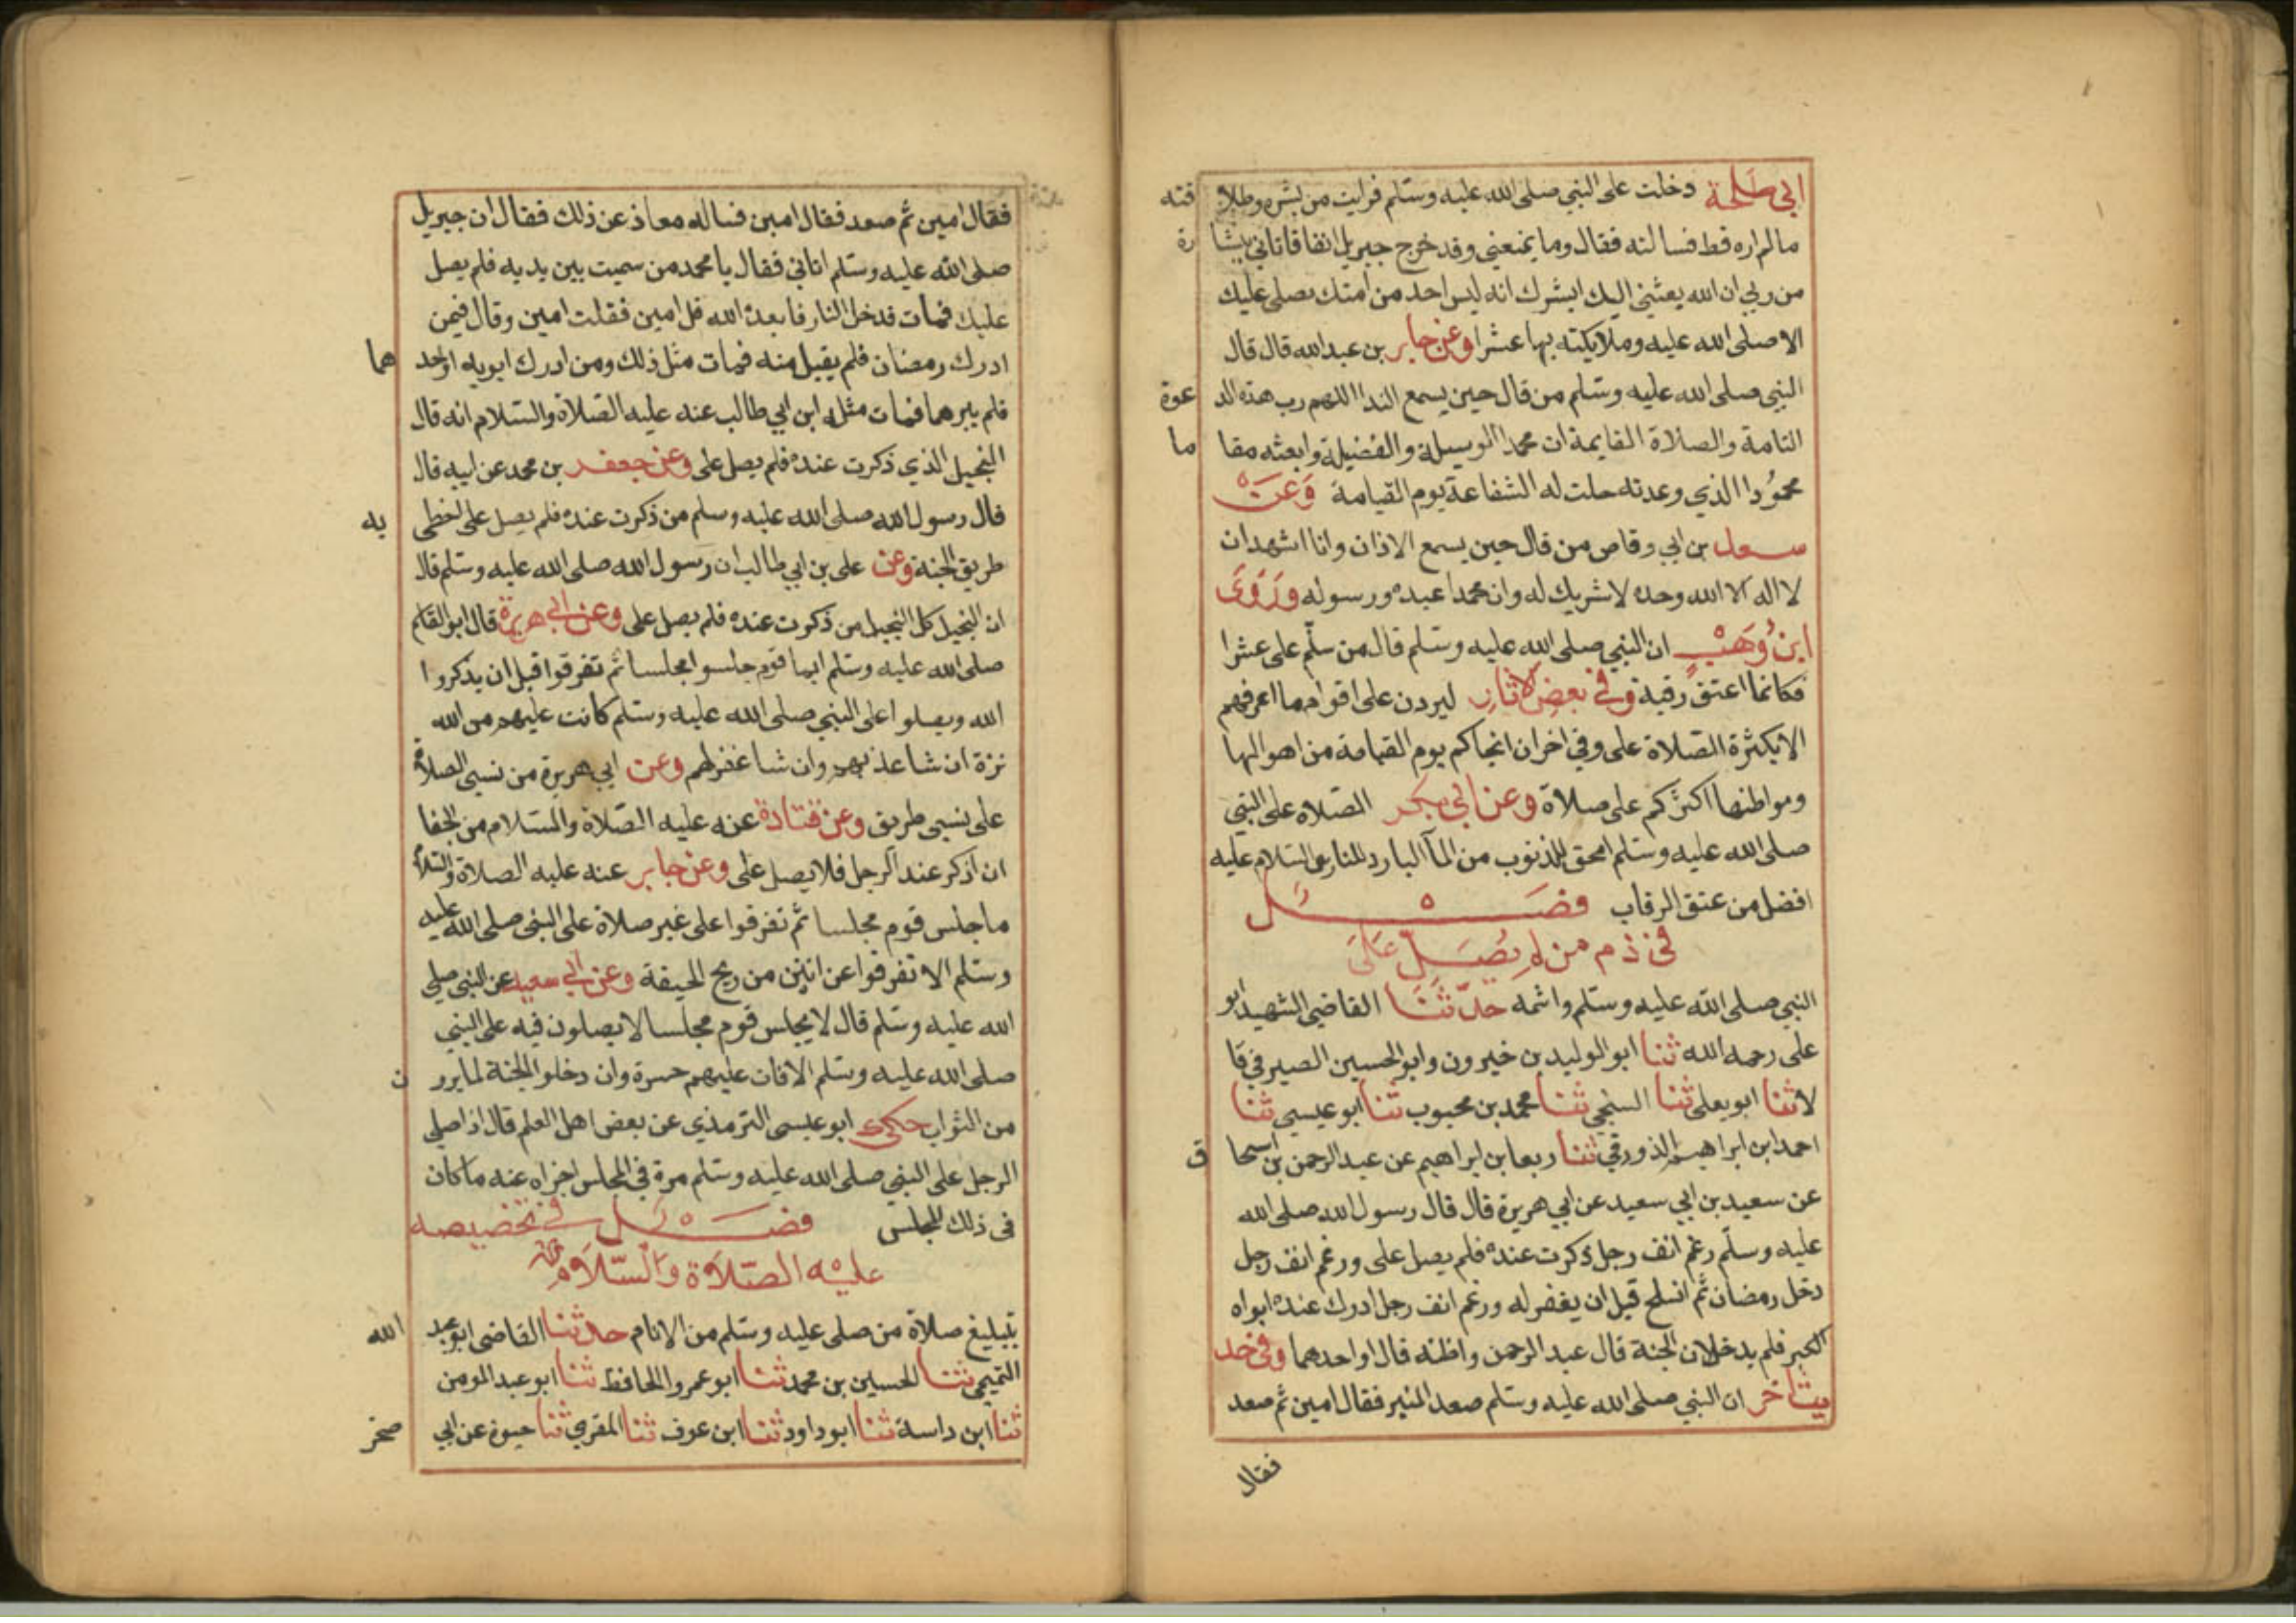 ابي طلحة دخلت على النبي صلى الله عليه وسلم فرايت من بشره وطلاقته
مالم اره قط فسالته فقال وما يمنعني وقد خرج جبريل انفا فاتاني ببشارة
من ربي ان الله بعثني اليك ابشرك انه ليس احد من امتك يصلي عليك
الا صلى الله عليه وملايكته بها عشرا وعن جابر بن عبد الله قال قال
النبي صلى الله عليه وسلم من قال حين يسمع الندا اللهم رب هذه الدعوة
التامة والصلاة القايمة ات محمدا الوسيلة والفضيلة وابعثه مقاما
محمودا الذي وعدته حلت له الشفاعة يوم القيامة وعن
سعد بن ابي وقاص من قال حين يسمع الاذان وانا اشهد ان
لا اله الا الله وحده لا شريك له وان محمدا عبده ورسوله وروى
ابن وهب ان النبي صلى الله عليه وسلم قال من سلم على عشرا
فكانما اعتق رقبة وفي بعض الاثار ليردن على اقوام ما اعرفهم
الا بكثرة الصلاة على وفي اخر ان انجاكم يوم القيامة من اهوالها
ومواطنها اكثركم على صلاة وعن ابي بكر الصلاه على النبي
صلى الله عليه وسلم امحق للذنوب من المآ البارد للنار والسلام عليه
افضل من عتق الرقاب فصل
في ذم من لم يصل على
النبي صلى الله عليه وسلم واثمه حدثنا القاضي الشهيد ابو
على رحمه الله ثنا ابو الوليد بن خيرون وابو الحسين الصيرفي قا
لا ثنا ابو يعلى ثنا السنجي ثنا محمد بن محبوب ثنا ابو عيسى ثنا
احمد ابن ابراهيم الدورقي ثنا ربعا بن ابراهيم عن عبد الرحمن بن اسحاق
عن سعيد بن ابي سعيد عن ابي هريرة قال قال رسول الله صلى الله
عليه وسلم رغم انف رجل ذكرت عنده فلم يصل على ورغم انف رجل
دخل رمضان ثم انسلخ قبل ان يغفر له ورغم انف رجل ادرك عنده ابواه
الكبر فلم يدخلان الجنة قال عبد الرحمن واظنه قال او احدهما وفي حد
يث اخر ان النبي صلى الله عليه وسلم صعد المنبر فقال امين ثم صعد
فقال
فقال امين ثم صعد فقال امين فساله معاذ عن ذلك فقال ان جبريل
صلى الله عليه وسلم اتاني فقال يا محمد من سميت بين يديه فلم يصل
عليك فمات فدخل النار فابعده الله قل امين فقلت امين وقال فيمن
ادرك رمضان فلم يقبل منه فمات مثل ذلك ومن ادرك ابويه او احدهما
فلم يبرهما فمات مثله ابن ابي طالب عنه عليه الصلاة والسلام انه قال
البخيل الذي ذكرت عنده فلم يصل على وعن جعفر بن محمد عن ابيه قال
قال رسول الله صلى الله عليه وسلم من ذكرت عنده فلم يصل على اخطى به
طريق الجنة وعن على بن ابي طالب ان رسول الله صلى الله عليه وسلم قال
ان البخيل كل البخيل من ذكرت عنده فلم يصل على وعن ابي هريرة قال ابو القاسم
صلى الله عليه وسلم ايما قوم جلسوا مجلسا ثم تفرقوا قبل ان يذكروا
الله ويصلوا على النبي صلى الله عليه وسلم كانت عليهم من الله
ترة ان شا عذبهم وان شا غفر لهم وعن ابي هريرة من نسي الصلاة
على نسي طريق وعن قتادة عنه عليه الصلاة والسلام من الجفا
ان اذكر عند الرجل فلا يصل على وعن جابر عنه عليه الصلاة والسلام
ما جلس قوم مجلسا ثم تفرقوا على غير صلاة على النبي صلى الله عليه
وسلم الا تفرقوا عن انتن من ريح الجيفة وعن ابي سعيد عن النبي صلى
الله عليه وسلم قال لا يجلس قوم مجلسا لا يصلون فيه على النبي
صلى الله عليه وسلم الا كان عليهم حسرة وان دخلو الجنة لما يرون
من الثواب حكى ابو عيسى الترمذي عن بعض اهل العلم قال اذا صلى
الرجل على النبي صلى الله عليه وسلم مرة في المجلس اجزاه عنه ما كان
في ذلك المجلس فصل في تخصيصه
عليه الصلاة والسلام
بتبليغ صلاة من صلى عليه وسلم من الانام حدثنا القاضي ابو عبد الله
التميمي ثنا الحسين بن محمد ثنا ابو عمرو الحافظ ثنا ابو عبد المومن
ثنا ابن داسة ثنا ابو داود ثنا ابن عوف ثنا المقري ثنا حيوة عن ابي صخر